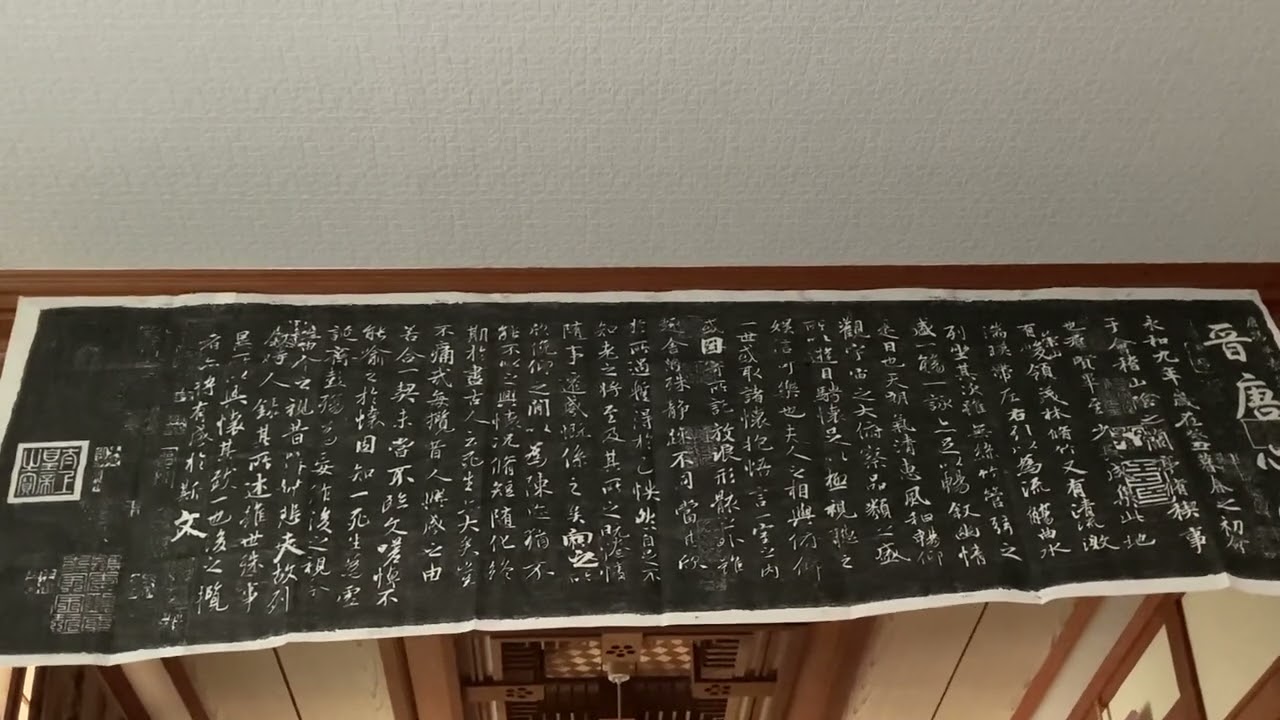 晉唐心
永和九年歲在癸丑暮春之初會
于會稽山陰之蘭亭脩稧事
也羣賢畢至少長咸集此地
有崇山峻領茂林脩竹又有清流激
湍暎帶左右引以為流觴曲水
列坐其次雖無絲竹管弦之
盛一觴一詠亦足以暢叙幽情
是日也天朗氣清惠風和暢仰
觀宇宙之大俯察品類之盛
所以遊目騁懷足以極視聽之
娛信可樂也夫人之相與俯仰
一世或取諸懷抱悟言一室之內
或因寄所託放浪形骸之外雖
趣舍萬殊靜躁不同當其欣
於所遇蹔得於己怏然自足不
知老之將至及其所之既惓情
隨事遷感慨係之矣向之所
欣俛仰之間以為陳迹猶不
能不以之興懷況脩短隨化終
期於盡古人云死生亦大矣豈
不痛哉每攬昔人興感之由
若合一契未嘗不臨文嗟悼不
能喻之於懷固知一死生為虛
誕齊彭殤為妄作後之視今
亦由今之視昔悲夫故列
敘時人錄其所述雖世殊事
異所以興懷其致一也後之攬
者亦將有感於斯文